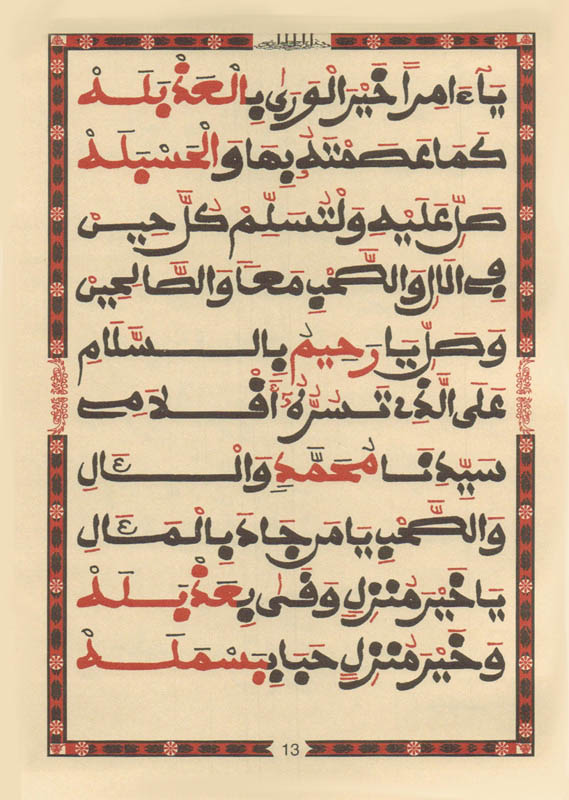 يَآءَامِراً خَيْرَ الْوَرَىٰ بِالْعَذْبَلَهْ
كَمَا عَصَمْتَهُ بِهَا وَالْحَسْبَلَهْ
صَلِّ عَلَيْهِ وَلْتُسَلِّمْ كُلَّ حِينْ
فِي الَالِ وَالصَّحْبِ مَعاً وَالصَّالِحِينْ
وَصَلِّ يَا رَحِيمُ بِالسَّلَامِ
عَلَى الَّذِي تَسُرُّهُ أَقْلَامِي
سَيِّدِنَا مُحَمَّدٍ وَالْـَالِ
وَالصَّحْبِ يَا مَن جَادَ بِالْمَـَالِ
يَا خَيْرَ مُنزِلٍ وَقَىٰ بِعَذْبَلَهْ
وَخَيْرَ مُنزِلٍ حَبَا بِبَسْمَلَهْ
13